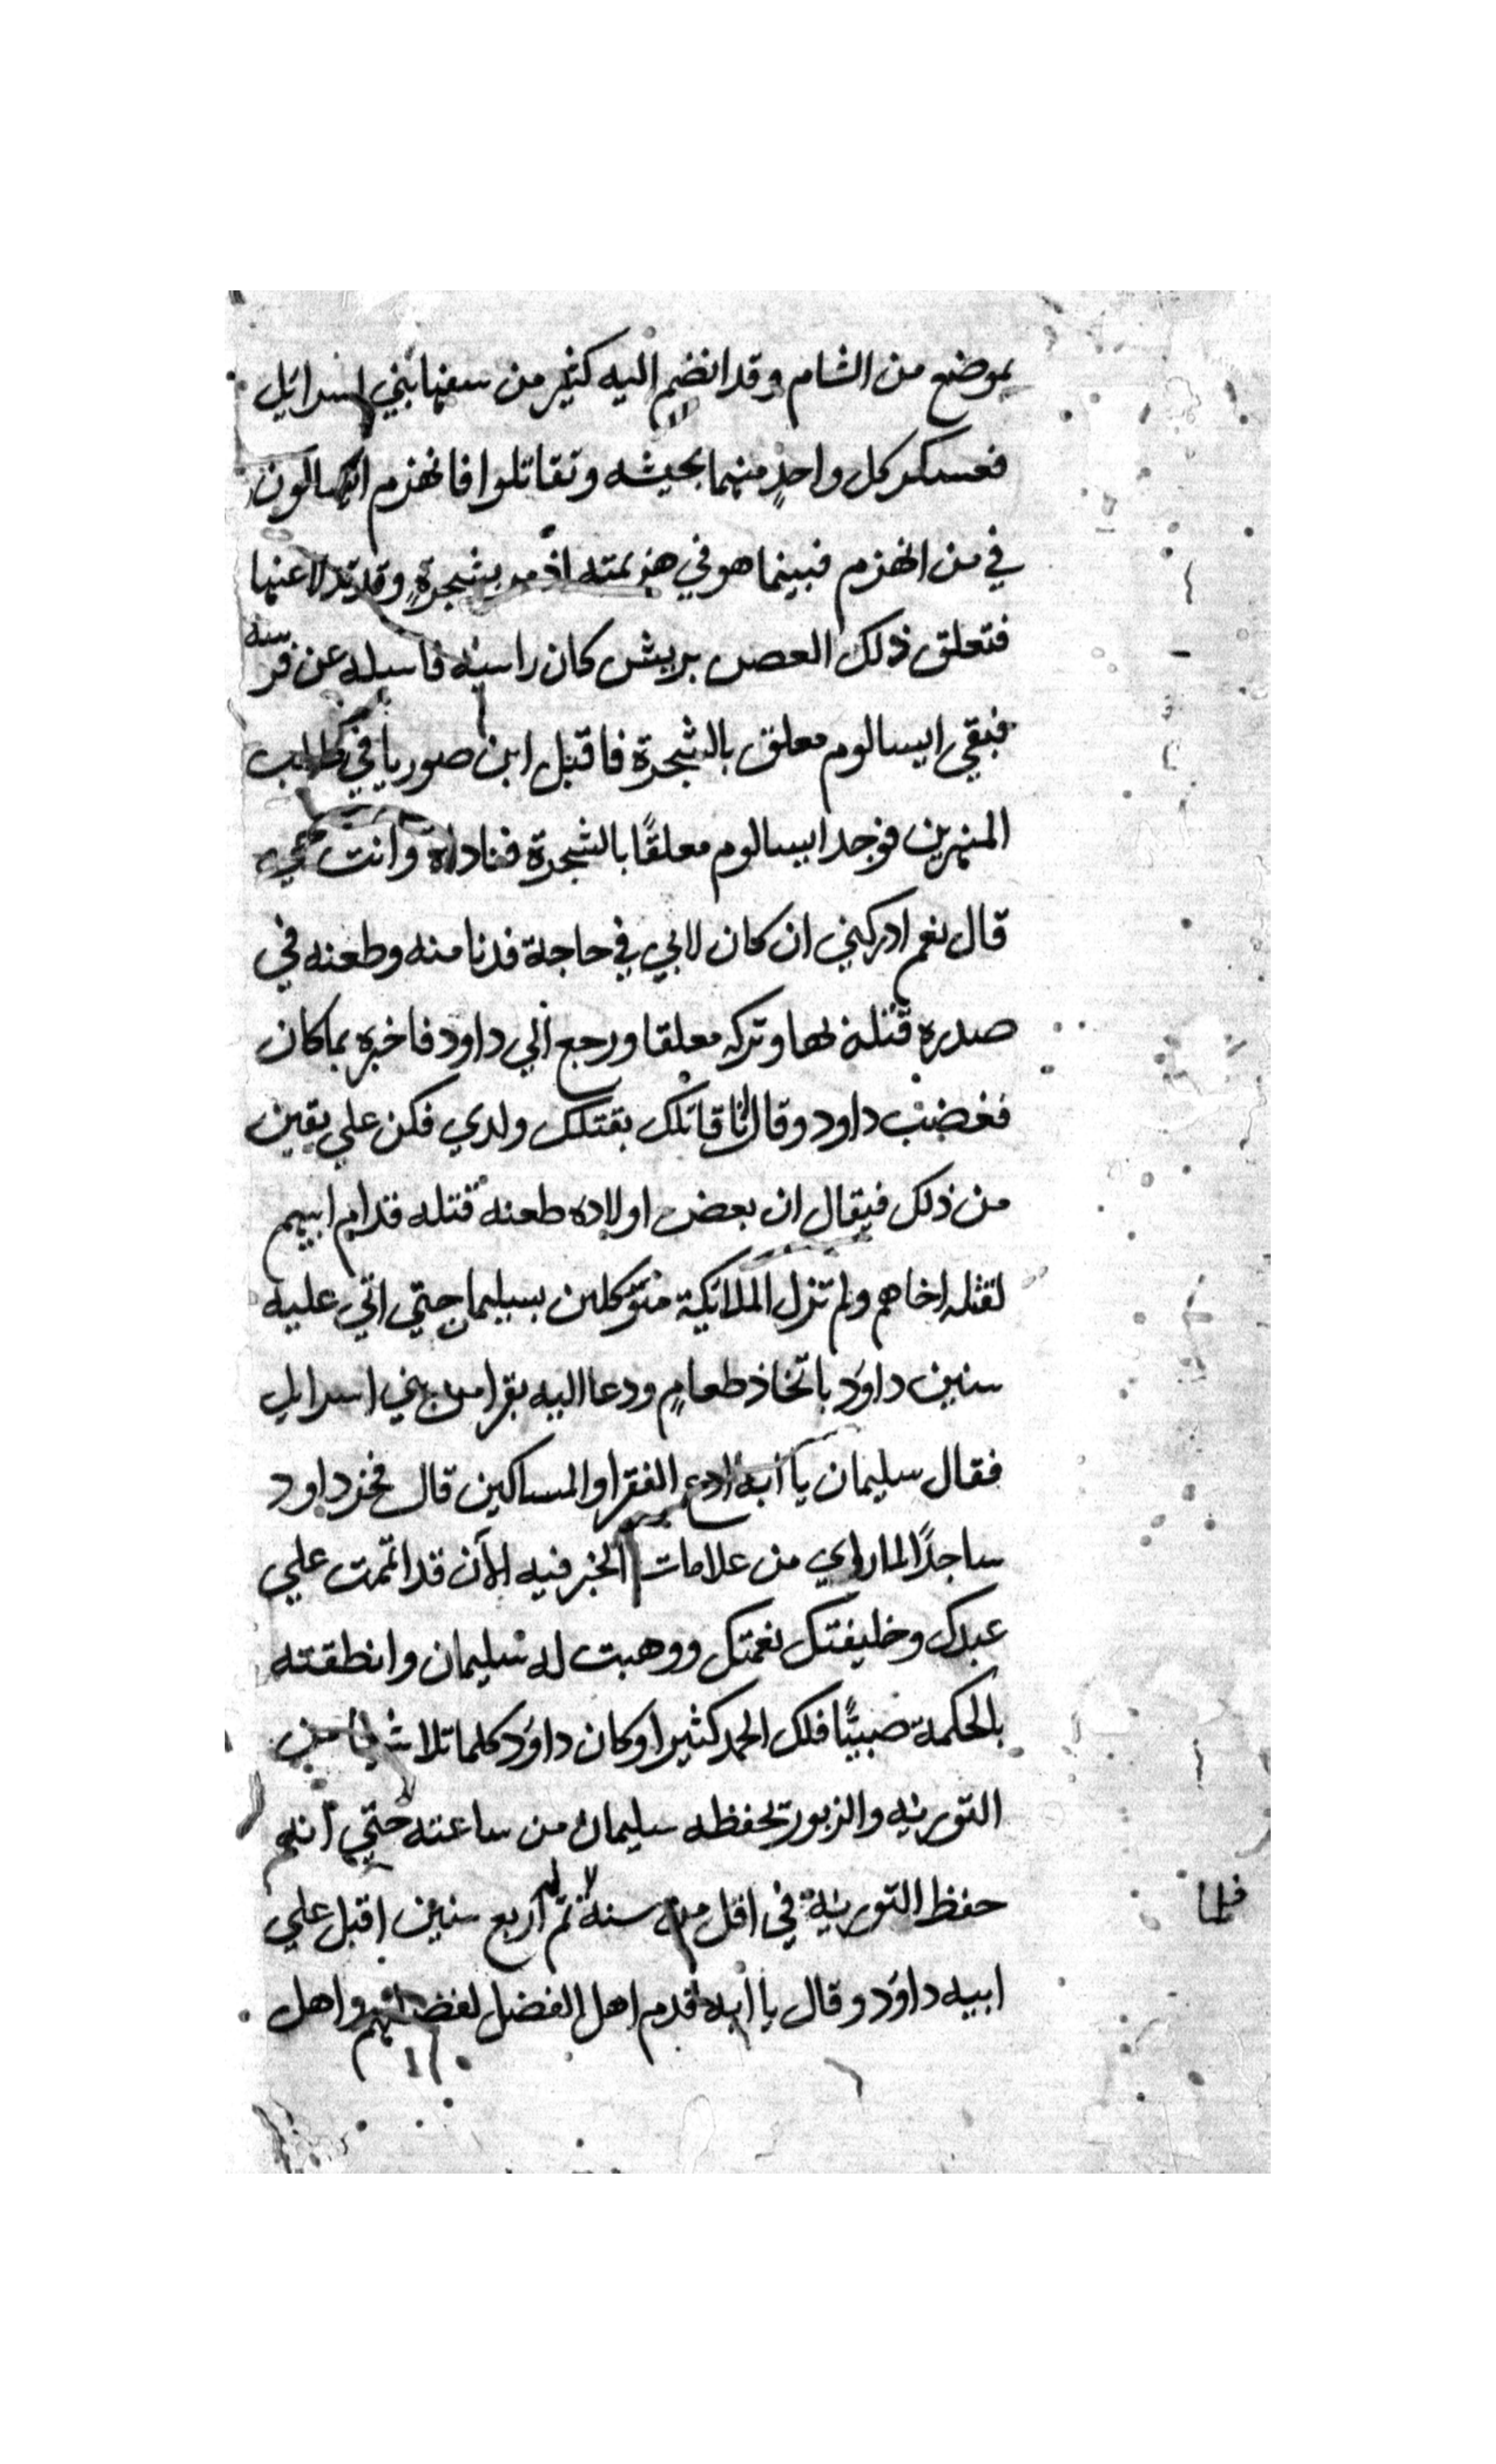 بموضع من الشام وقد انضم اليه كثير من سفها بني اسرائيل
فعسكر كل واحدٍ منهما بجيشه وتقاتلوا فانهزم ايسالون
في من انهزم فبينما هو في هزيمته اذ مر بشجرةٍ وقد تدلا عنها
فتعلق ذلك العصن بريش كان راسه فاسبله عن فرسه
فبقي ايسالوم معلق بالشجرة فاقبل ابن صوريا في طلب
المنهزمين فوجد ابيسالوم معلقًا بالشجرة فناداه وانت حي
قال نعم ادركني ان كان لابي في حاجة فدنا منه وطعنه في
صدره قتله بها وتركه معلقا ورجع الي داود فاخبره بما كان
فغضب داود وقال انا قاتلك بقتلك ولدي فكن علي يقين
من ذلك فيقال ان بعض اولاده طعنه قتله قدام ابيهم
لقتله اخاهم ولم تزل الملائكة متوكلين بسيليمان حتي اتي عليه
سنين داوَد باتخاذ طعامٍ ودعا اليه بقرا من بني اسرايل
فقال سليمان يا ابه ادع الفقرا والمساكين قال فخر داود
ساجدًا لما راي من علامات الخير فيه الآن قد اتممت علي
عبدك وخليفتك نعمتك ووهبت له سليمان وانطقته
بالحكمة صبيًّا فلك الحمد كثيرا وكان داوَد كلما تلا شيا من
التوريه والزبور يحفظه سليمان من ساعته حتي انه
حفظ التوريه في اقل من سنة ثم لا له اربع سنين اقبل علي
ابيه داوَد وقال يا ابه قدم اهل الفضل لفضلهم واهل
فلما